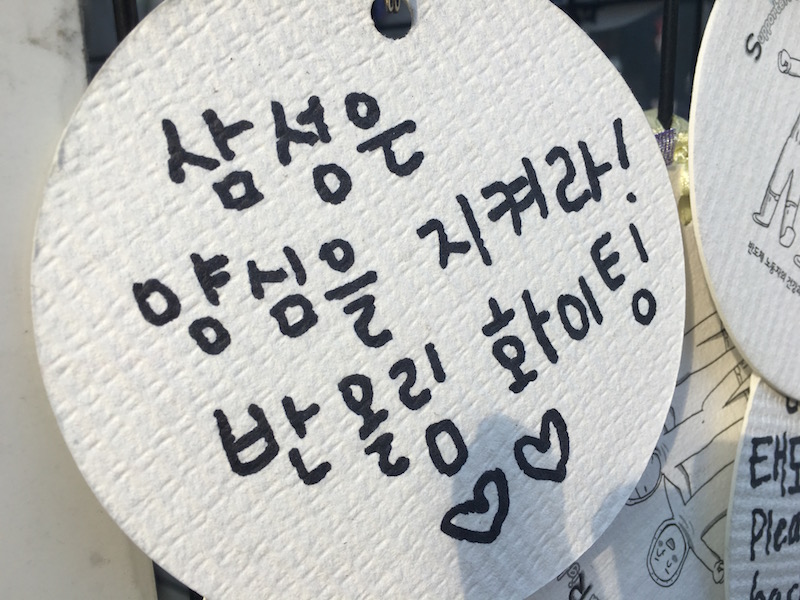 삼성은
양심을 지켜라!
반올림 화이팅
반도체 노동자의 건강
Plea